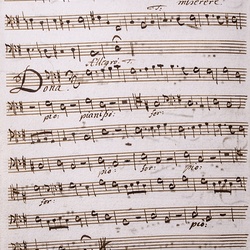 miserere
Allegro
Dona
pio: pianiss: for:
pio: for: pio:
for
pio: